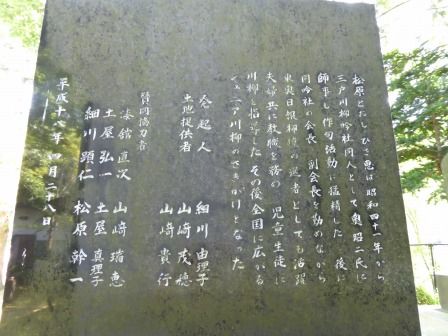 松原とおしとひさ恵は昭和四十一年から
三戸川柳吟社同人として奥昭二氏に
師事し作句活動に猛精した 後に
同吟社の会長 副会長を勤めながら
東奥日報柳壇の選者としても活躍
夫婦共に教職を務め 児童生徒に
川柳を指導した その後全国に広がる
ジュニア川柳のさきがけとなった
発起人 細川由理子
土地提供者 山﨑茂穂
山﨑貴行
賛同協力者
湊舘直次 山﨑瑞恵
土屋弘一 土屋真理子
細川顕仁 松原幹一
平成十年四月二十八日